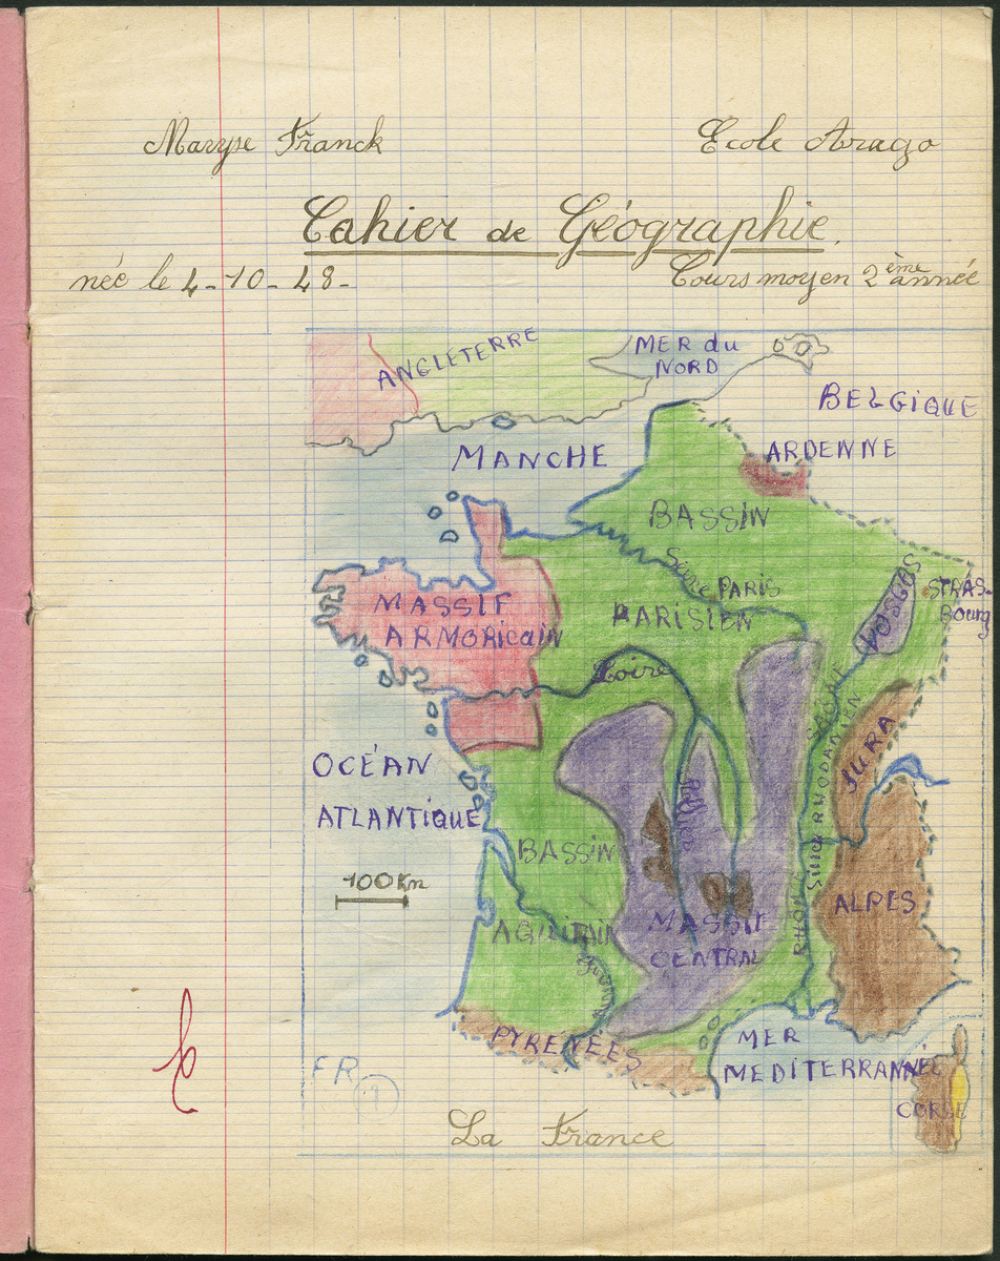 Maryse Franck
Ecole Arago
Cahier de Géographie.
née le 4-10-48-
Cours moyen 2ème année
ANGLETERRE
MER du
NORD
BELGIQUE
MANCHE
ARDENNE
BASSIN
Seine
PARIS
PARISIEN
VOSGES
STRAS-
Bourg
MASSIF
ARMORICAIN
Loire
JURA
OCÉAN
ATLANTIQUE
Allier
SILLON RHODANIEN
BASSIN
100Km
ALPES
MASSIF
CENTRAL
RHÔNE
PYRÉNÉES
MER
MEDITERRANNÉE
CORSE
FR
1
La France